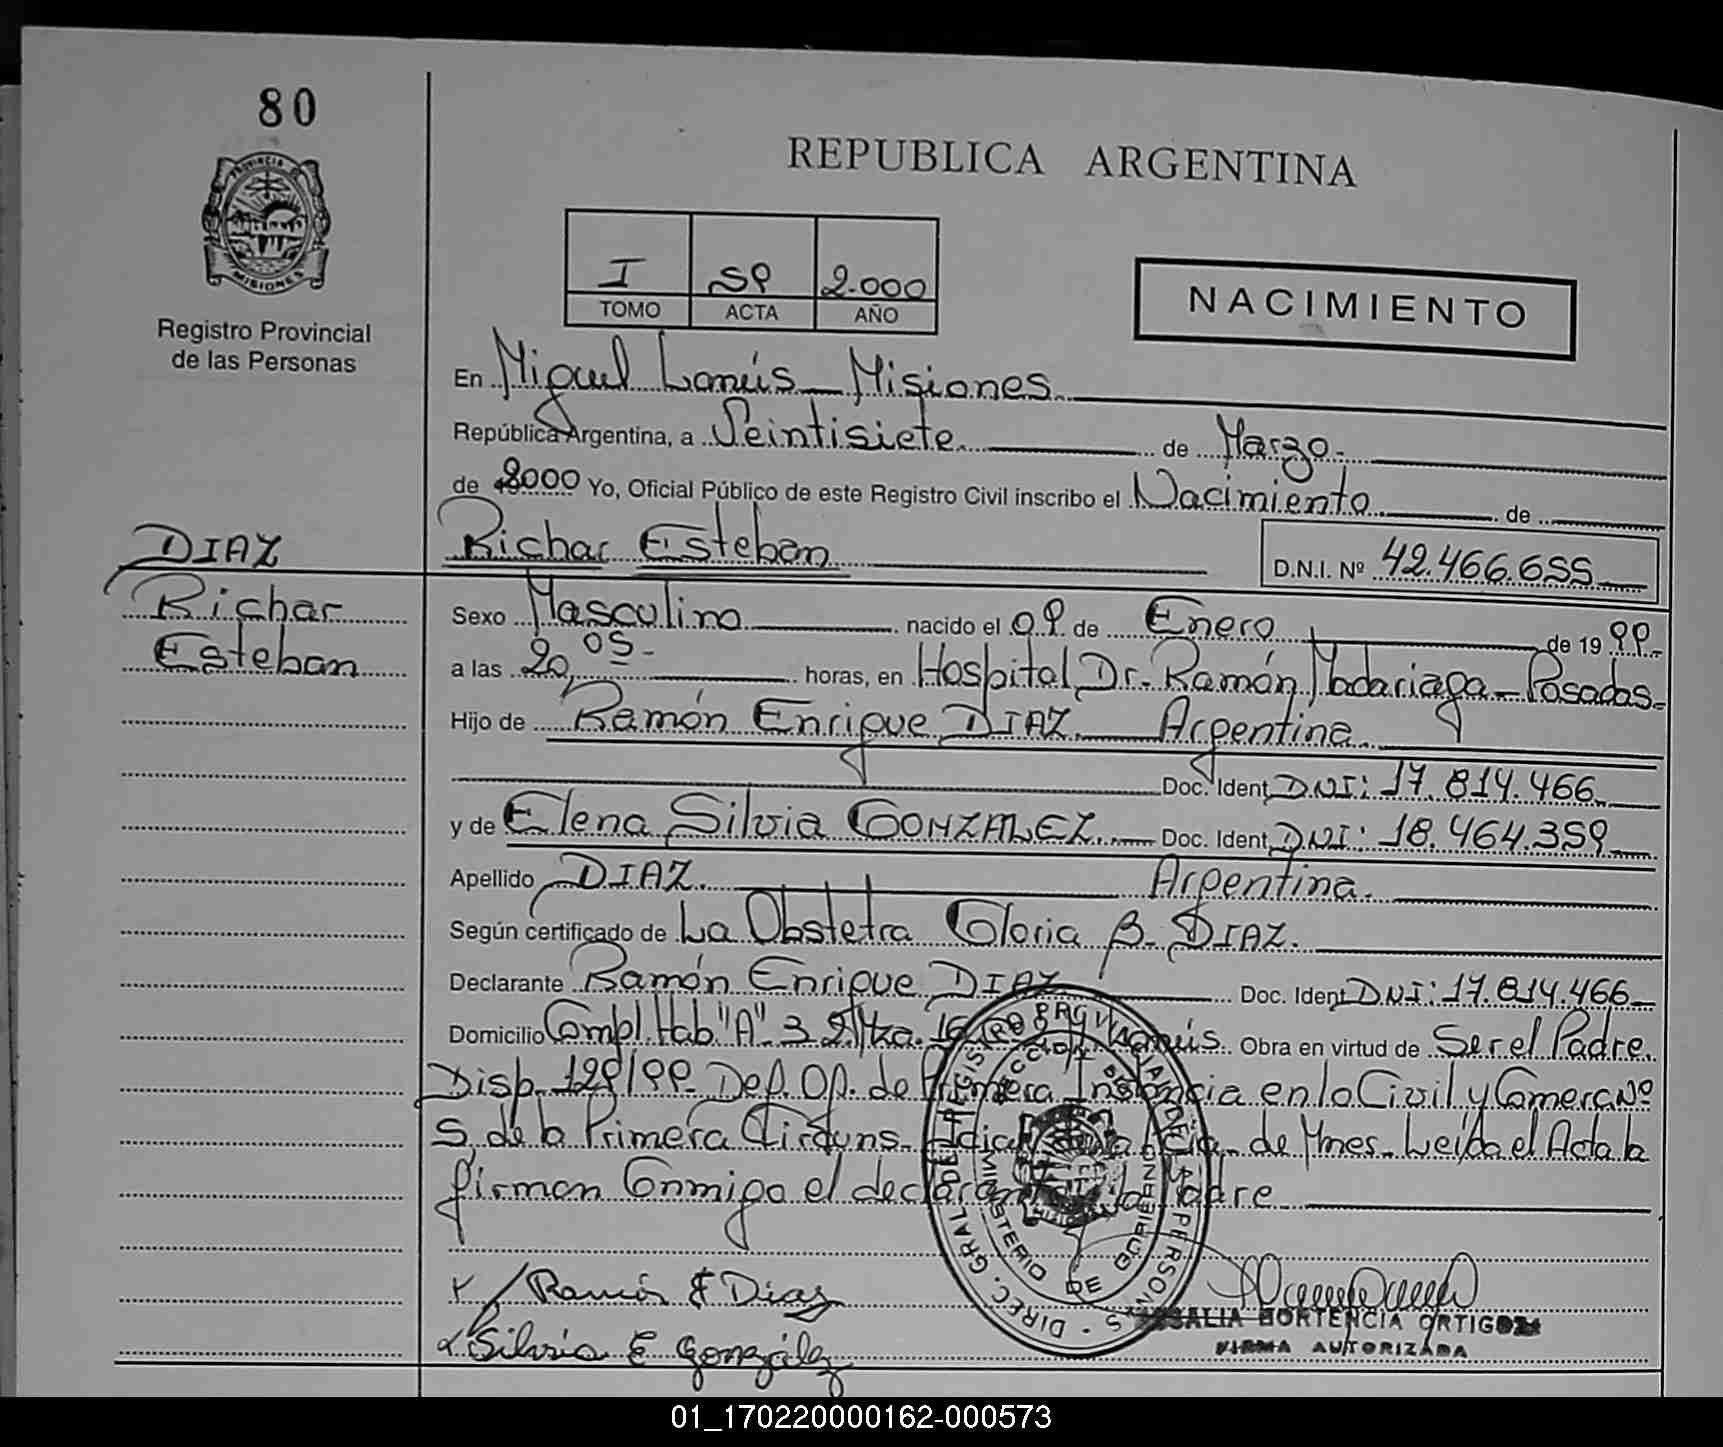 80
PROVINCIA DE
MISIONES
Registro Provincial
de las Personas
REPUBLICA ARGENTINA
I 59 2.000
TOMO ACTA AÑO
NACIMIENTO
En Miguel Lanús - Misiones
República Argentina, a Veintisiete de Marzo
de 2000 Yo, Oficial Público de este Registro Civil inscribo el Nacimiento de
DIAZ
Richar
Esteban
Richar Esteban D.N.I. Nº 42.466.655
Sexo Masculino nacido el 09 de Enero de 1999.
a las 20,05 - horas, en Hospital Dr. Ramón Madariaga - Posadas.
Hijo de Ramón Enrique DIAZ. Argentina.
Doc. Ident. DNI: 17.814.466
y de Elena Silvia GONZALEZ. Doc. Ident. DNI: 18.464.359
Apellido DIAZ. Argentina.
Según certificado de La Obstetra Gloria B. DIAZ.
Declarante Ramón Enrique DIAZ Doc. Ident. DNI: 17.814.466
Domicilio Compl. Hab "A" 3 2 Mza. 16 Lanús. Obra en virtud de Ser el Padre.
Disp. 129/99 Def. Of. de Primera Instancia en lo Civil y Comerc. Nº
5 de la Primera Circuns. de Mnes. Leída el Acta la
firman Conmigo el declarante y la Madre
Ramón E Diaz
Silvia E González
DIREC. GRAL. DEL REGISTRO PROVINCIAL DE LAS PERSONAS
MINISTERIO DE GOBIERNO
ROSALIA HORTENCIA ORTIGOZA
FIRMA AUTORIZADA
01_170220000162-000573